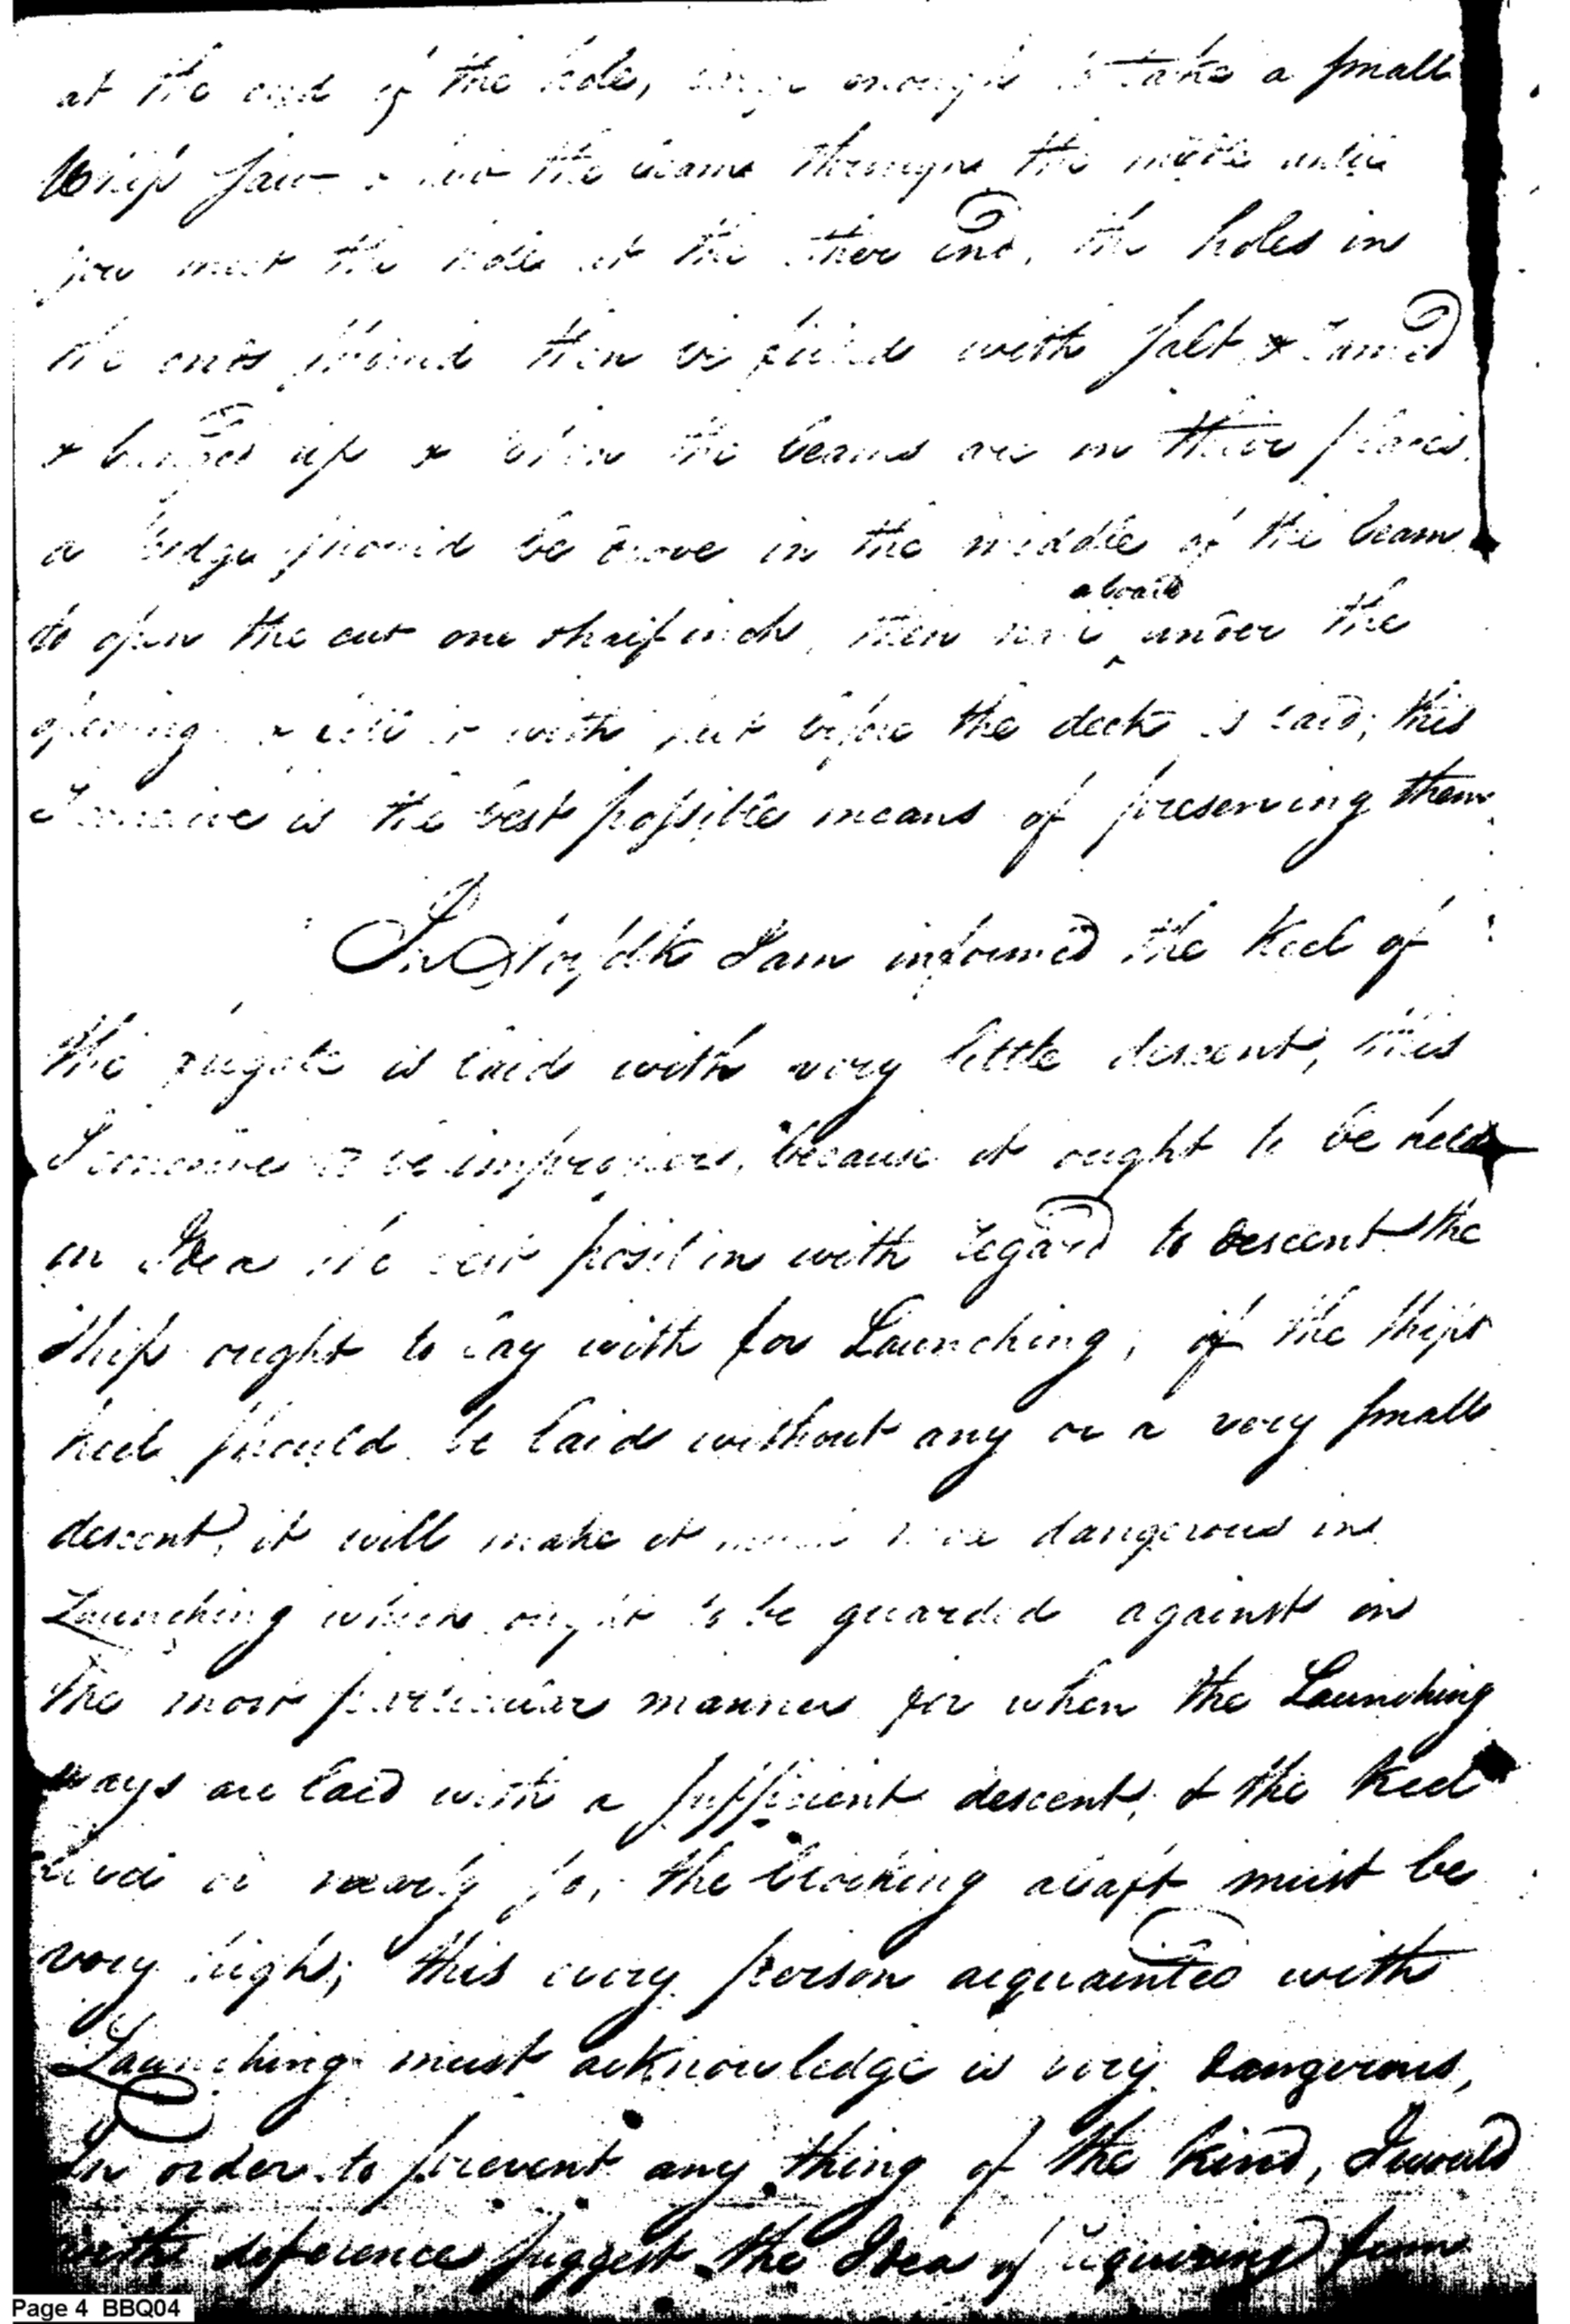 at the end of the hole, large enough to take a small
Whip saw & saw the beam through the middle until
you meet the hole at the other end, the holes in
the ends should then be filled with salt &
& up & when the beams are in their places
a wedge should be drove in the middle of the beam
to open the cut one half inch, then nail a board under the
opening & fill it with salt before the deck is laid; this
I conceive is the best possible means of preserving them
In Norfolk I am informed the Keel of
the frigate is laid with very little descent, this
I conceive to be improper, because it ought to be held
in Idea the best position with regard to descent the
Ship ought to lay with for Launching, if the Ships
keel should be laid without any or a very small
descent, it will make it much more dangerous in
Launching which ought to be guarded against in
the most particular manner for when the Launching
ways are laid with a sufficient descent, & the Keel
level or nearly so, the blocking abaft must be
very high; this every person acquainted with
Launching must acknowledge is very dangerous,
In order to prevent any thing of the kind, I would
with deference suggest the Idea of requiring from
Page 4 BBQ04